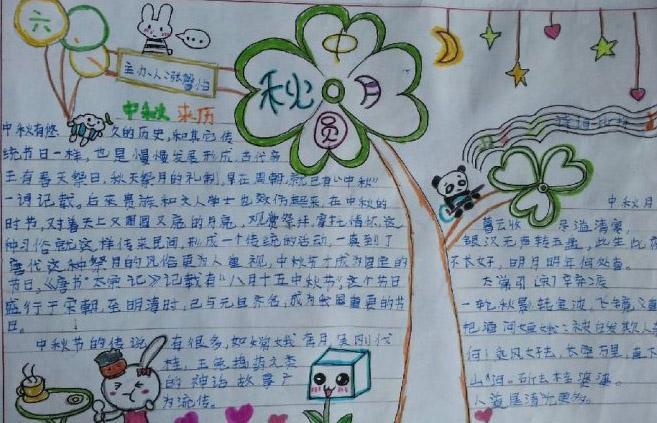 六
主办人:张
中
秋
月
圆
中秋来历
中秋有悠久的历史,和其它传
统节日一样,也是慢慢发展形成,古代帝
王有春天祭日,秋天祭月的礼制,早在周朝,就已有“中秋”
一词记载。后来贵族和文人学士也效仿起来,在中秋的
时节,对着天上又
观赏祭拜,寄托情怀,这
种习俗就这样传来民间,形成一个传统的活动,一直到了
唐代这种祭月的风俗更为人重视,中秋节才成为固定的
节日,《唐书·太宗记》记载有“八月十五中秋节”,这个节日
盛行于宋朝,至明清时,已与元旦齐名,成为我国重要的节
日。
中秋节的传说有很多,如嫦娥奔月,吴刚伐
桂,玉兔捣药之类
的神话故事广
为流传。
中秋月
暮云收 尽溢清寒,
银汉无声转玉盘,此生此夜
不长好,明月明年何处看。
一轮秋影转金波,飞镜又
把酒问姮娥:被白发欺人
何!乘风好去,长空万里,直下
山河。斫去桂婆娑。
人道是清光更多。